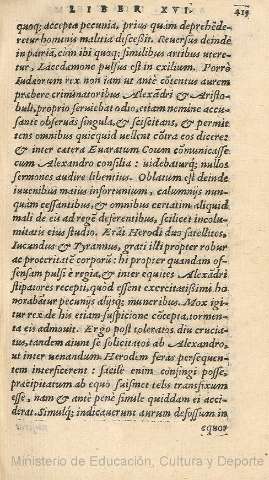 LIBER XVI. 419
quoq; accepta pecunia, prius quàm deprehẽde-
retur hominis malitia discessit. Reuersus deinde
in patria, cùm ibi quoq; similibus artibus utere-
tur, Lacedæmone pulsus est in exilium. Porrò
Iudæorum rex non iam ut antè cõtentus aurem
præbere criminatoribus Alexãdri & Aristo-
buli, proprio seruiebat odio, etiam nemine accu-
sante obseruãs singula, & sciscitans, & permit
tens omnibus quicquid uellent cõtra eos dicere:
& inter cætera Euaratum Coum cõmunicasse
cum Alexandro consilia: uidebaturq; nullos
sermones audire libentius. Oblatum est deinde
iuuenibus maius infortunium, calumnijs nun-
quàm cessantibus, & omnibus certatim aliquid
mali de eis ad regẽ deferentibus, scilicet incolu-
mitatis eius studio. Erãt Herodi duo satellites,
Iucundus & Tyrannus, grati illi propter robur
ac proceritatẽ corporũ: hi propter quandam of-
fensam pulsi è regia, & inter equites Alexãdri
stipatores recepti, quòd essent exercitatissimi ho
norabãtur pecunijs alijsq; muneribus. Mox igi-
tur rex de his etiam suspicione cõcepta, tormen-
ta eis admouit. Ergo post toleratos diu crucia-
tus, tandem aiunt se solicitatos ab Alexandro,
ut inter uenandum Herodem feras persequen-
tem interficerent: facilè enim confingi posse
præcipitatum ab equo suismet telis transfixum
esse, nam & antè penè simile quiddam ei acci-
dirat. Simulq; indicauerunt aurum defossum in
equor
Ministerio de Educación, Cultura y Deporte